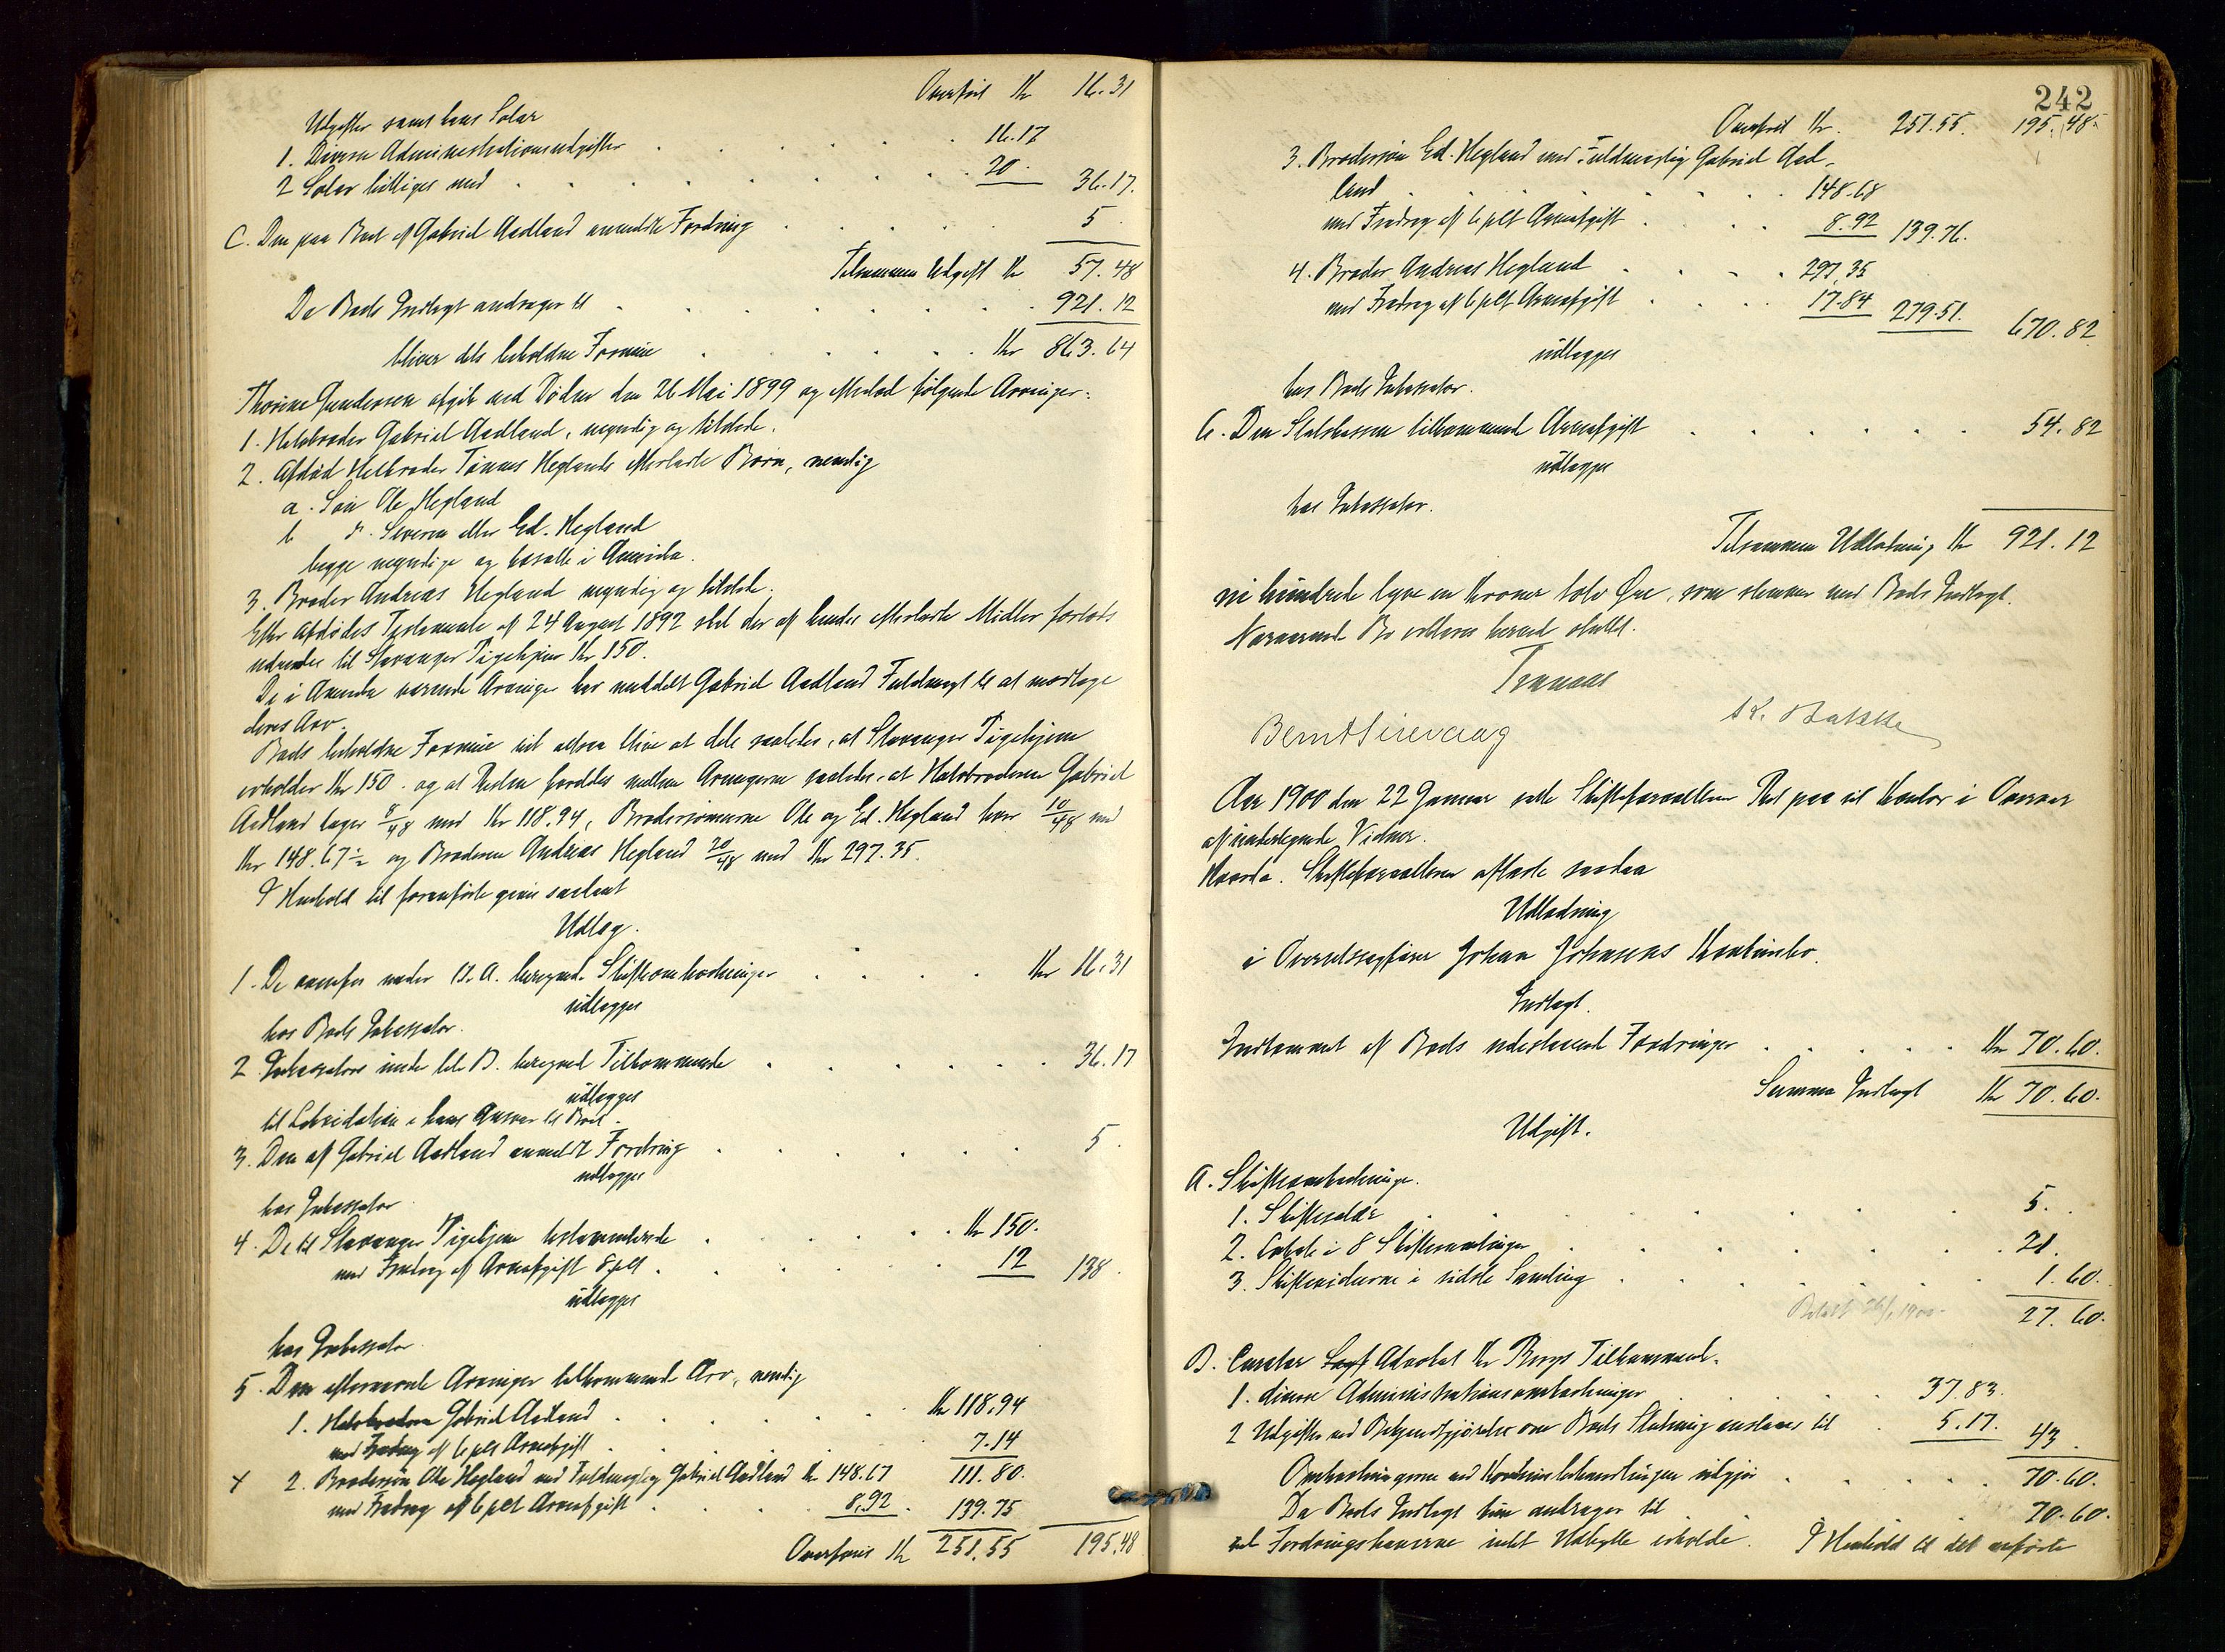 Overført Kr 16.31
Udgifter samt hans Salær
1. Diverse Administrationsudgifter 16.17
2 Salær billiges med 20. 36.17.
C. Den paa Boet af Gabriel Aadland anmeldte Fordring 5.
Tilsammen Udgift Kr 57.48
Da Boets Indtægt andrager til 921.12
bliver dets beholdne Formue Kr 863.64
Thorine Gundersen afgik ved Døden den 26 Mai 1899 og efterlod følgende Arvinger:
1. Halvbroder Gabriel Aadland, myndig og tilstede.
2. Afdød Helbroder Tønnes Heglands efterladte Børn, nemlig
a. Søn Ole Hegland
b. Severin eller Ed. Hegland
begge myndige og bosatte i Amerika.
3. Broder Andreas Hegland myndig og tilstede.
Efter Afdødes Testamente af 24 August 1892 skal der af hendes efterladte Midler forlods
udredes til Stavanger Pigehjem Kr 150.
De i Amerika værende Arvinger har meddelt Gabriel Aadland Fuldmagt til at modtage
deres Arv.
Boets beholdne Formue vil altsaa blive at dele saaledes, at Stavanger Pigehjem
erholder Kr 150. og at Resten fordeles mellem Arvingerne saaledes at Halvbroderen Gabriel
Aadland tager 8/48 med Kr 118.94, Brodersønnerne Ole og Ed. Hegland hver 10/48 med
Kr 148.67½ og Broderen Andreas Hegland 20/48 med Kr 297.35.
I Henhold til foranførte gives saadant
Udlæg.
1. De ovenfor under Lt. A. beregnede Skifteomkostninger Kr 16.31
udlægges
hos Boets Inkassator.
2 Inkassators under litr B. beregnede Tilkommende 36.17
udlægges
til Likvidation i hans Ansvar til Boet.
3. Den af Gabriel Aadland anmeldte Fordring 5.
udlægges
hos Inkassator
4. De til Stavanger Pigehjem testamenterede Kr 150.
med Fradrag af Arveafgift 8 pCt. 12 138.
udlægges
hos Inkassator.
5. Den efternævnte Arvinger tilkommende Arv, nemlig
1. Halvbroderen Gabriel Aadland Kr 118.94
med Fradrag af 6 pCt Arveafgift 7.14
2. Brodersøn Ole Hegland ved Fuldmægtig Gabriel Aadland Kr 148.67 111.80.
med Fradrag af 6 pCt Arveafgift 8.92 139.75
Overføres Kr 251.55 195.48
242
Overført Kr. 251.55. 195.48.
3. Brodersøn Ed. Hegland ved Fuldmægtig Gabriel Aad-
land 148.68
med Fradrag af 6 pCt Arveafgift 8.92 139.76.
4. Broder Andreas Hegland 297.35
med Fradrag af 6 pCt Arveafgift 17.84 279.51. 670.82
udlægges
hos Boets Inkassator.
6. Den Statskassen tilkommende Arveafgift 54.82
udlægges
hos Inkassator.
Tilsammen Udlodning Kr 921.12
ni hundrede tyve en Kroner tolv Øre, som stemmer med Boets Indtægt.
Nærværende Bo erklæres herved sluttet.
Tannæs
Berntsirevaag K. Bakke
Aar 1900 den 22 Januar satte Skifteforvalteren Ret paa sit Kontor i Overvær
af undertegnede Vidner.
Hvorda. Skifteforvalteren afsagde saadan
Udlodning
i Overretssagfører Johan Johnsens Konkursbo.
Indtægt.
Indkommet af Boets udestaaende Fordringer Kr 70.60.
Summa Indtægt Kr 70.60.
Udgift.
A. Skifteomkostninger.
1. Skiftesalær 5.
2. Betale i 8 Skiftesamlinger 21.
3. Skiftevidnerne i sidste Samling 1.60.
Betalt 26/1 1900. 27.60.
B. Curator Sagf Advokat Kr Bergs Tilkommende.
1. diverse Administrationsomkostninger 37.83.
2 Udgifter ved Bekjendtgjørelse om Boets Slutning anslaaes til 5.17. 43.
Omkostningerne ved Konkursbehandlingen udgjør 70.60.
Da Boets Indtægt kun andrager til 70.60.
vil Fordringshaverne intet Udbytte erholde. I Henhold til det anførte